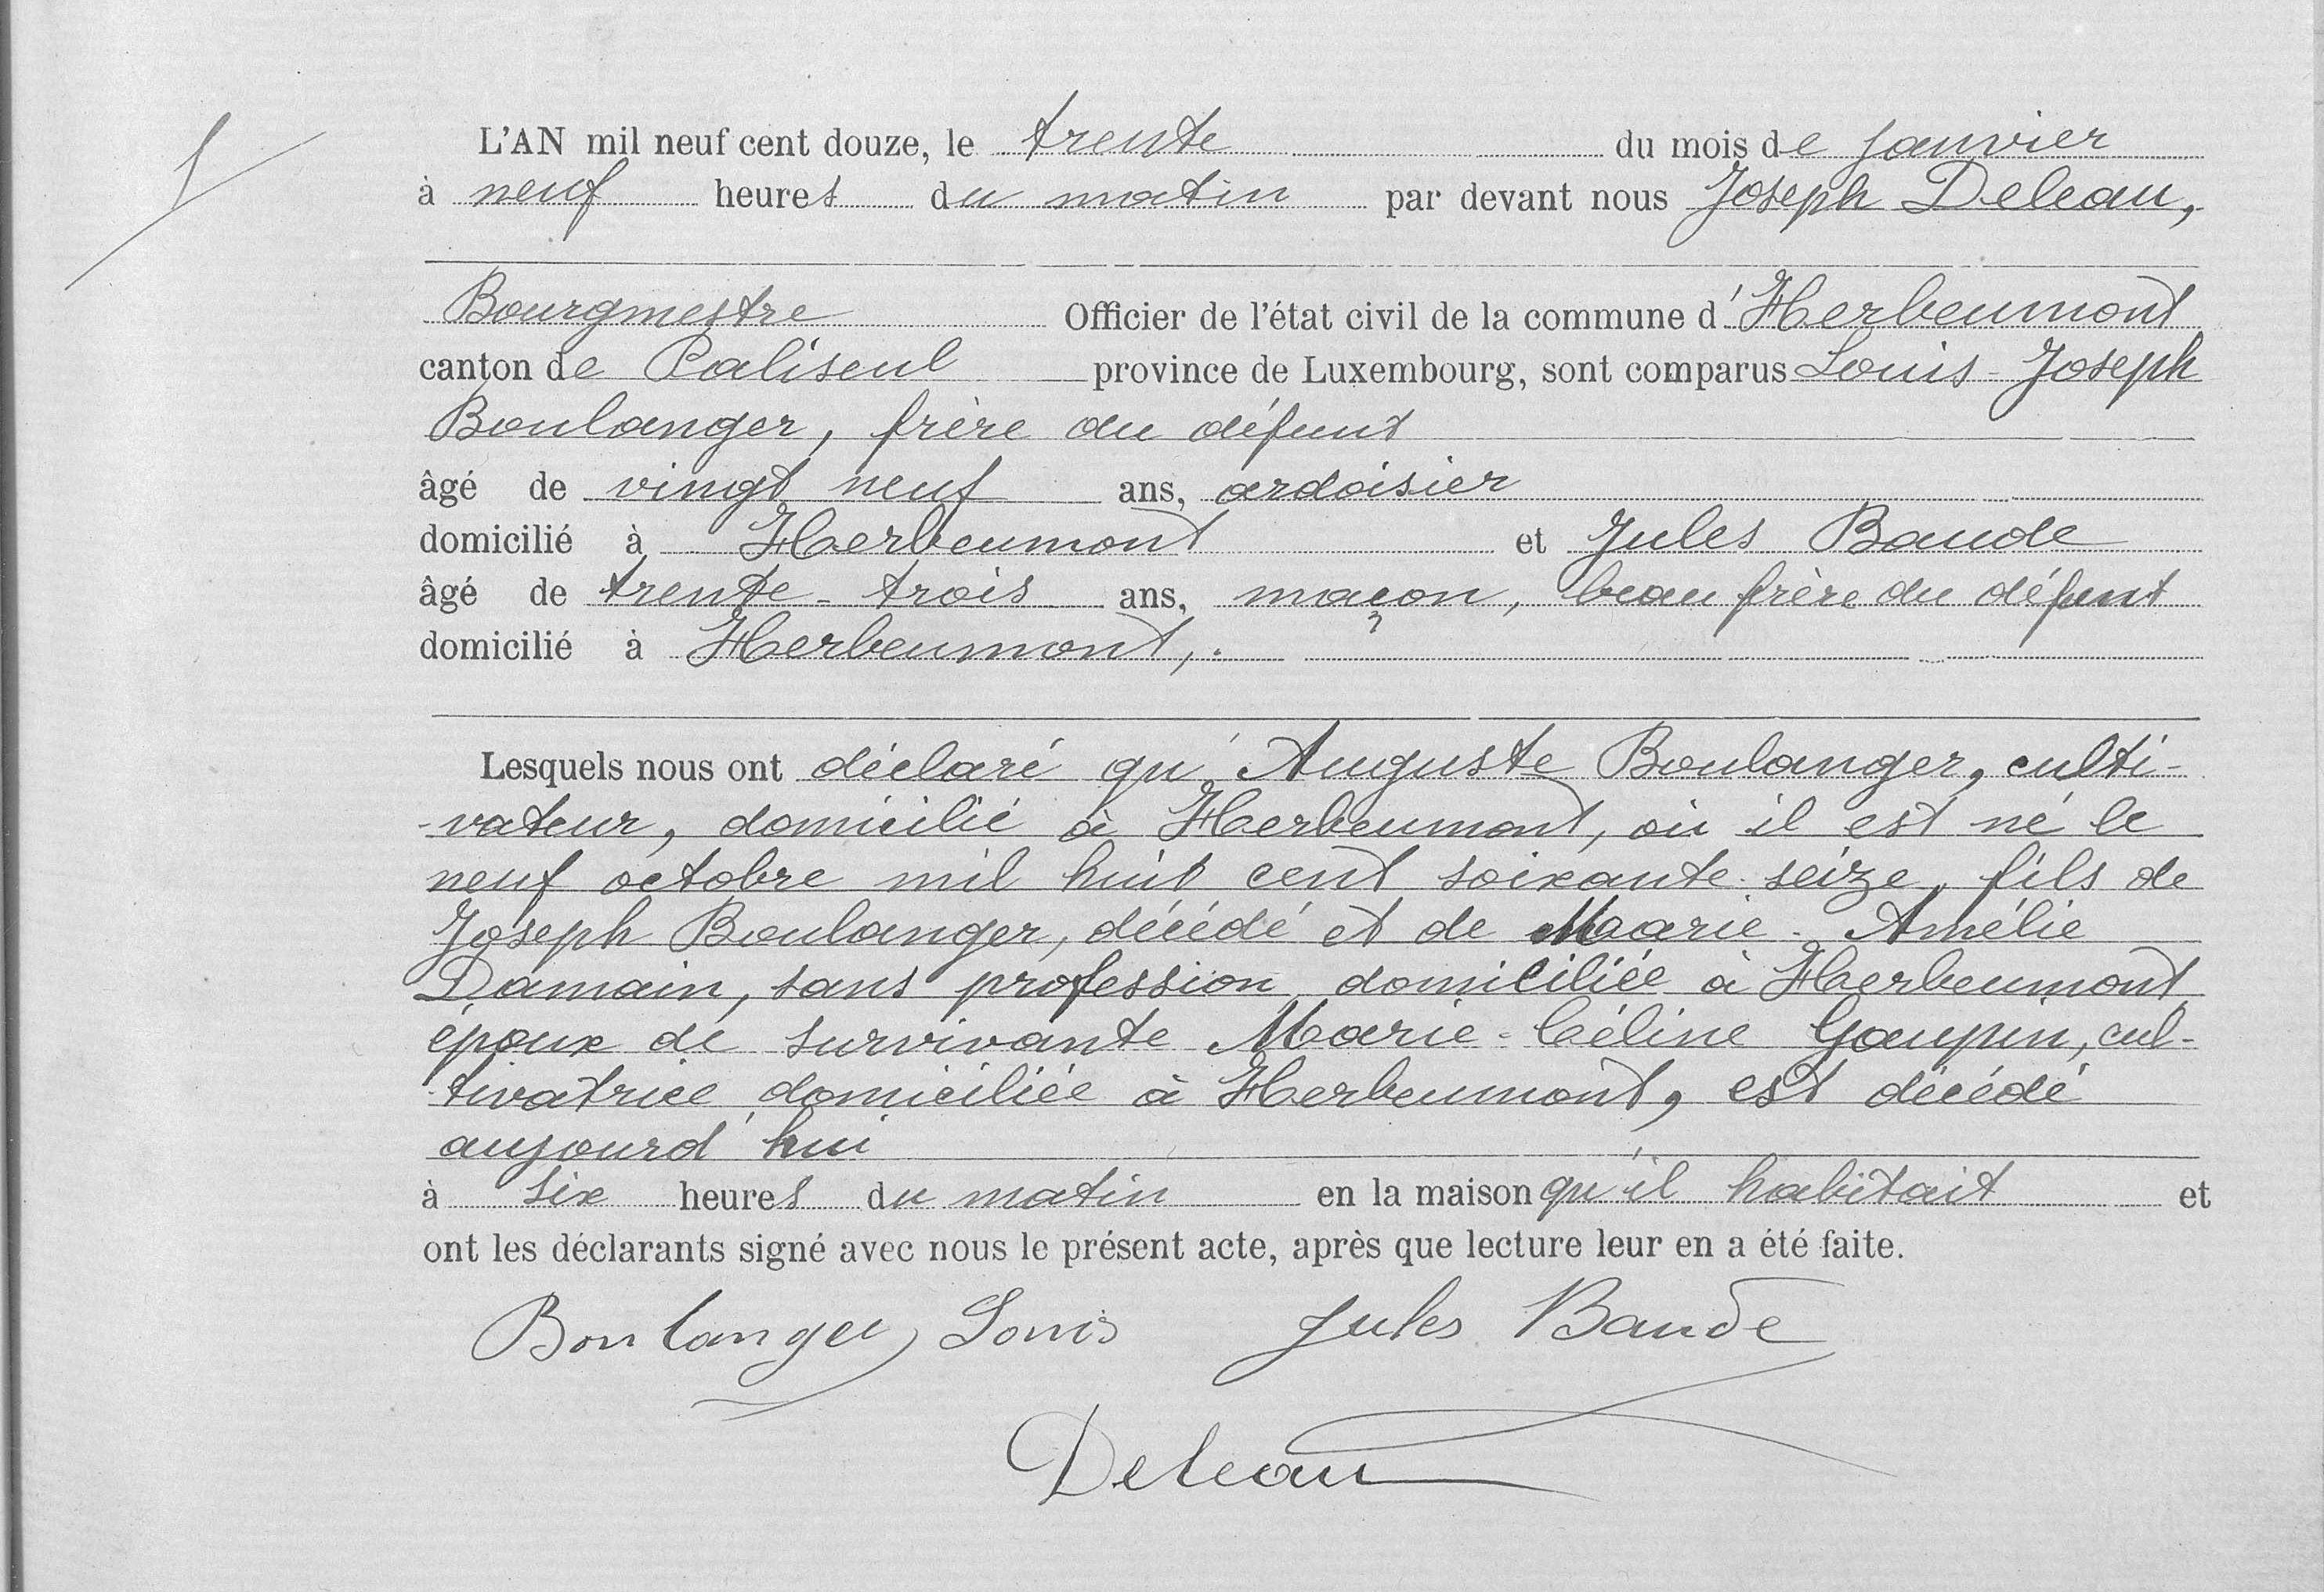 L'AN mil neuf cent douze, le trente du mois de janvier
à neuf heures du matin par devant nous Joseph Deleau,
Bourgmestre Officier de l'état civil de la commune d'Herbeumont
canton de Paliseul province de Luxembourg, sont comparus Louis-Joseph
Boulanger, frère du défunt
âgé de vingt neuf ans, ardoisier
domicilié à Herbeumont et Jules Baude
âgé de trente-trois ans, maçon, beau frère du défunt
domicilié à Herbeumont,.
Lesquels nous ont déclaré qu'Auguste Boulanger, culti-
-vateur, domicilié à Herbeumont, où il est né le
neuf octobre mil huit cent soixante-seize, fils de
Joseph Boulanger, décédé et de Marie-Amélie
Damain, sans profession domiciliée à Herbeumont
époux de survivante Marie-Céline Goupin, cul-
tivatrice domiciliée à Herbeumont, est décédé
aujourd'hui
à six heures du matin en la maison qu'il habitait et
ont les déclarants signé avec nous le présent acte, après que lecture leur en a été faite.
Boulanger Louis Jules Baude
Deleau